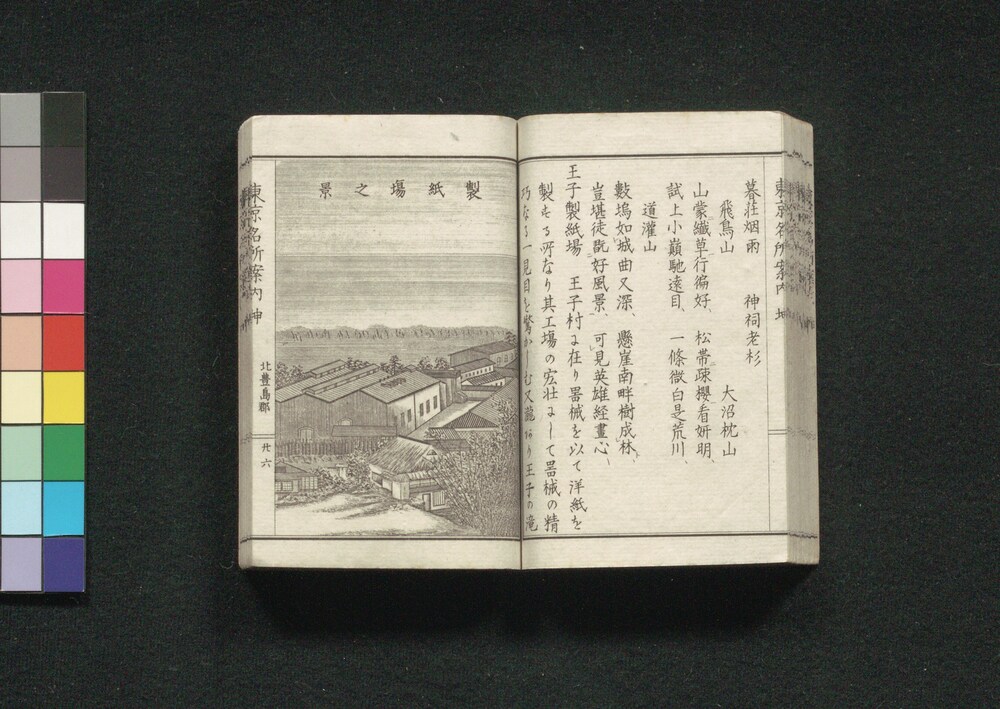 暮荘烟雨　神祠老杉
飛鳥山　大沼枕山
山蒙纎草行徧好、松帯疎櫻看妍明、
試上小巓馳遠目、一條微白是荒川、
道灌山
數塢如城曲又深、懸崖南畔樹成林、
豈堪徒翫好風景、可見英雄経畫心、
王子製紙場　王子村に在り器械を以て洋紙を
製する所なり其工塲の宏壮にして器械の精
巧なる一見目を驚かしむ又瀧あり王子の滝
製紙塲之景
東京名所案内 坤
北豊島郡
廿六